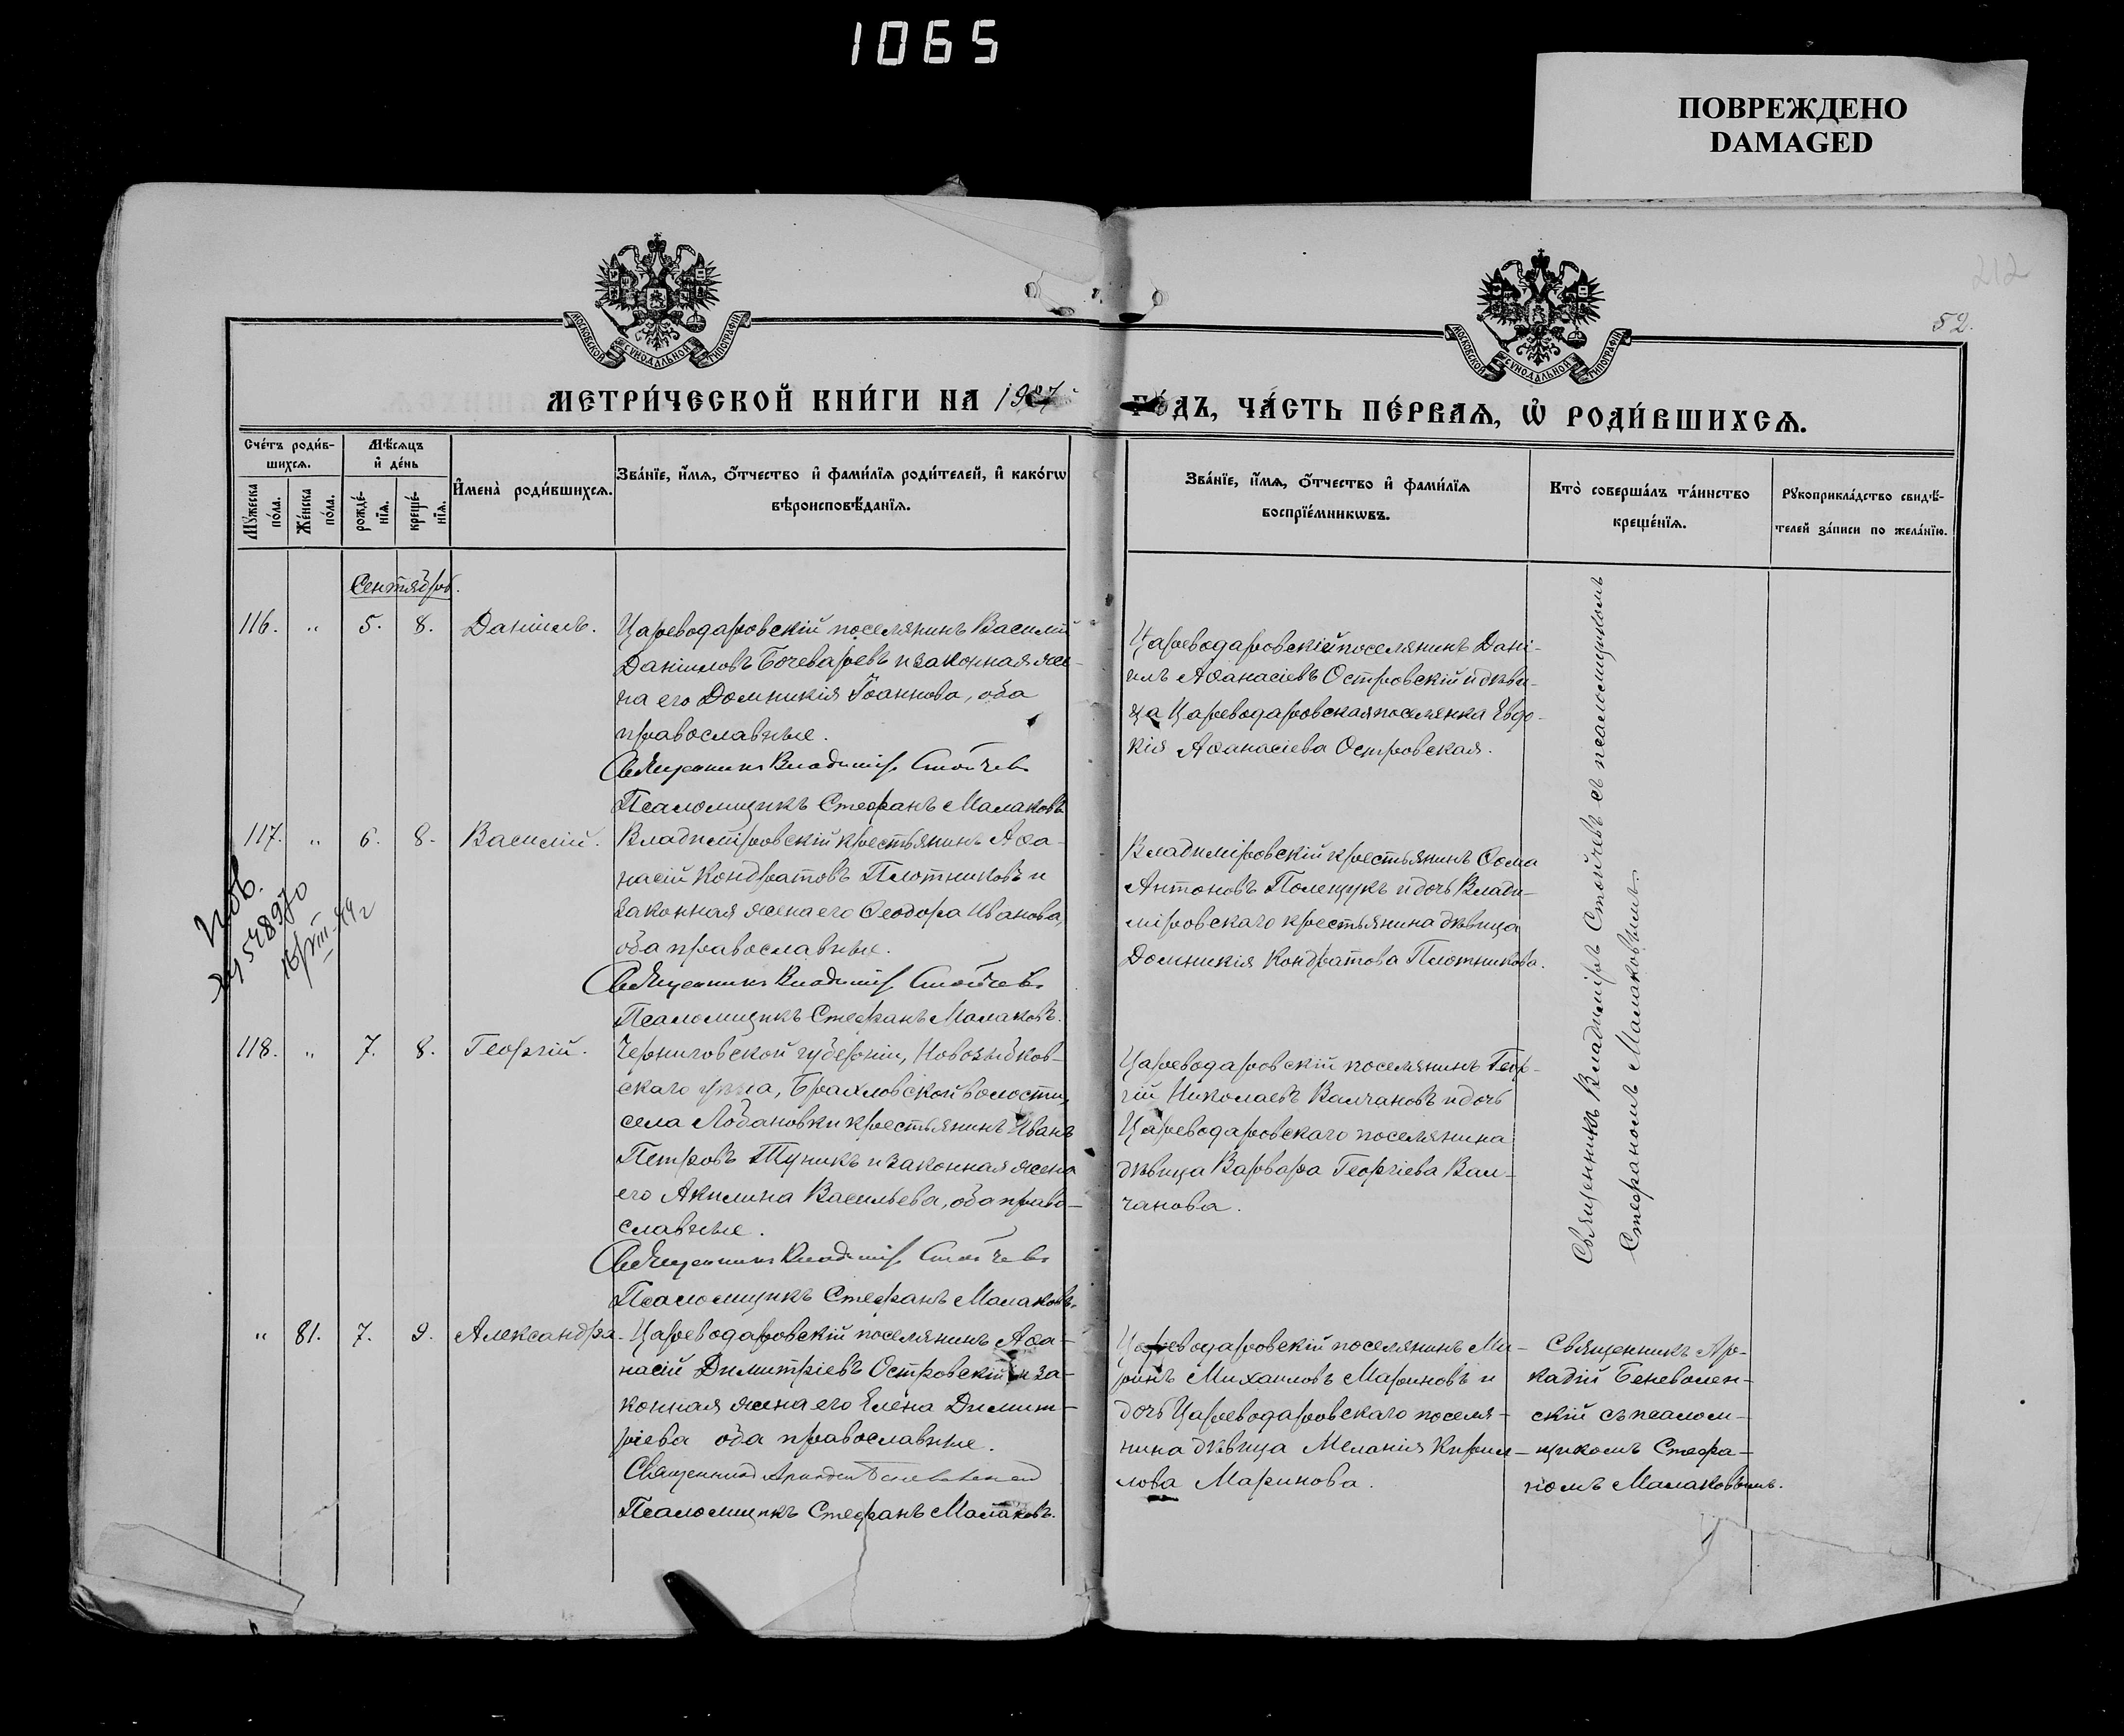 1065
ПОВРЕЖДЕНО
DAMAGED
212
52.
МОСКОВСКОЙ СѴНОДАЛЬНОЙ ТИПОГРАФІИ
МОСКОВСКОЙ СѴНОДАЛЬНОЙ ТИПОГРАФІИ
МЕТРИ́ЧЕСКОЙ КНИ́ГИ НА 1907
ГО́ДЪ, ЧА́СТЬ ПЕ́РВАѦ, Ѡ҆ РОДИ́ВШИХСѦ.
Сче́тъ роди́в-
шихсѧ.
Мꙋ́жеска по́ла.
Же́нска по́ла.
Мѣ́сѧцъ
и҆ де́нь
рожде́-
нїѧ.
креще́-
нїѧ.
И҆мена̀ роди́вшихсѧ.
Зва́нїе, и҆́мѧ, ѻ҆́тчество и҆ фами́лїѧ роди́телей, и҆ како́гѡ
вѣроисповѣ́данїѧ.
Зва́нїе, и҆́мѧ, ѻ҆́тчество и҆ фами́лїѧ
воспрїе́мникѡвъ.
Кто̀ соверша́лъ та́инство
креще́нїѧ.
Рꙋкоприкла́дство свидѣ́-
телей за́писи по жела́нїю.
Сентябрь.
116. " 5. 8. Даніилъ.
Цареводаровскій поселянинъ Василій
Даніиловъ Бочеваровъ и законная же-
на его Домникія Іоаннова, оба
православные.
Священникъ Владиміръ Стойчевъ
Псаломщикъ Стефанъ Малаковъ.
Цареводаровскій поселянинъ Дані-
илъ Аѳанасіевъ Островскій и дѣви-
ца Цареводаровская поселянка Евдо-
кія Аѳанасіева Островская.
117. " 6. 8. Василій.
Владиміровскій крестьянинъ Аѳа-
насій Кондратовъ Плотниковъ и
законная жена его Ѳеодора Иванова,
оба православные.
Священникъ Владиміръ Стойчевъ
Псаломщикъ Стефанъ Малаковъ.
Владиміровскій крестьянинъ Ѳома
Антоновъ Полещукъ и дочь Влади-
міровскаго крестьянина дѣвица
Домникія Кондратова Плотникова.
118. " 7. 8. Георгій.
Черниговской губерніи, Новозыбков-
скаго уѣзда, Брахловской волости,
села Лобановки крестьянинъ Иванъ
Петровъ Тупикъ и законная жена
его Акилина Васильева, оба право-
славные.
Священникъ Владиміръ Стойчевъ
Псаломщикъ Стефанъ Малаковъ.
Цареводаровскій поселянинъ Геор-
гій Николаевъ Валчановъ и дочь
Цареводаровскаго поселянина
дѣвица Варвара Георгіева Вал-
чанова.
Священникъ Владиміръ Стойчевъ съ псаломщикомъ
Стефаномъ Малаковымъ.
" 81. 7. 9. Александра.
Цареводаровскій поселянинъ Аѳа-
насій Димитріевъ Островскій и за-
конная жена его Елена Димит-
ріева оба православные.
Священникъ Аркадій Беневоленскій
Псаломщикъ Стефанъ Малаковъ.
Цареводаровскій поселянинъ Ма-
ринъ Михаиловъ Мариновъ и
дочь Цареводаровскаго поселя-
нина дѣвица Меланія Кирил-
лова Маринова.
Священникъ Ар-
кадій Беневолен-
скій съ псалом-
щикомъ Стефа-
номъ Малаковымъ.